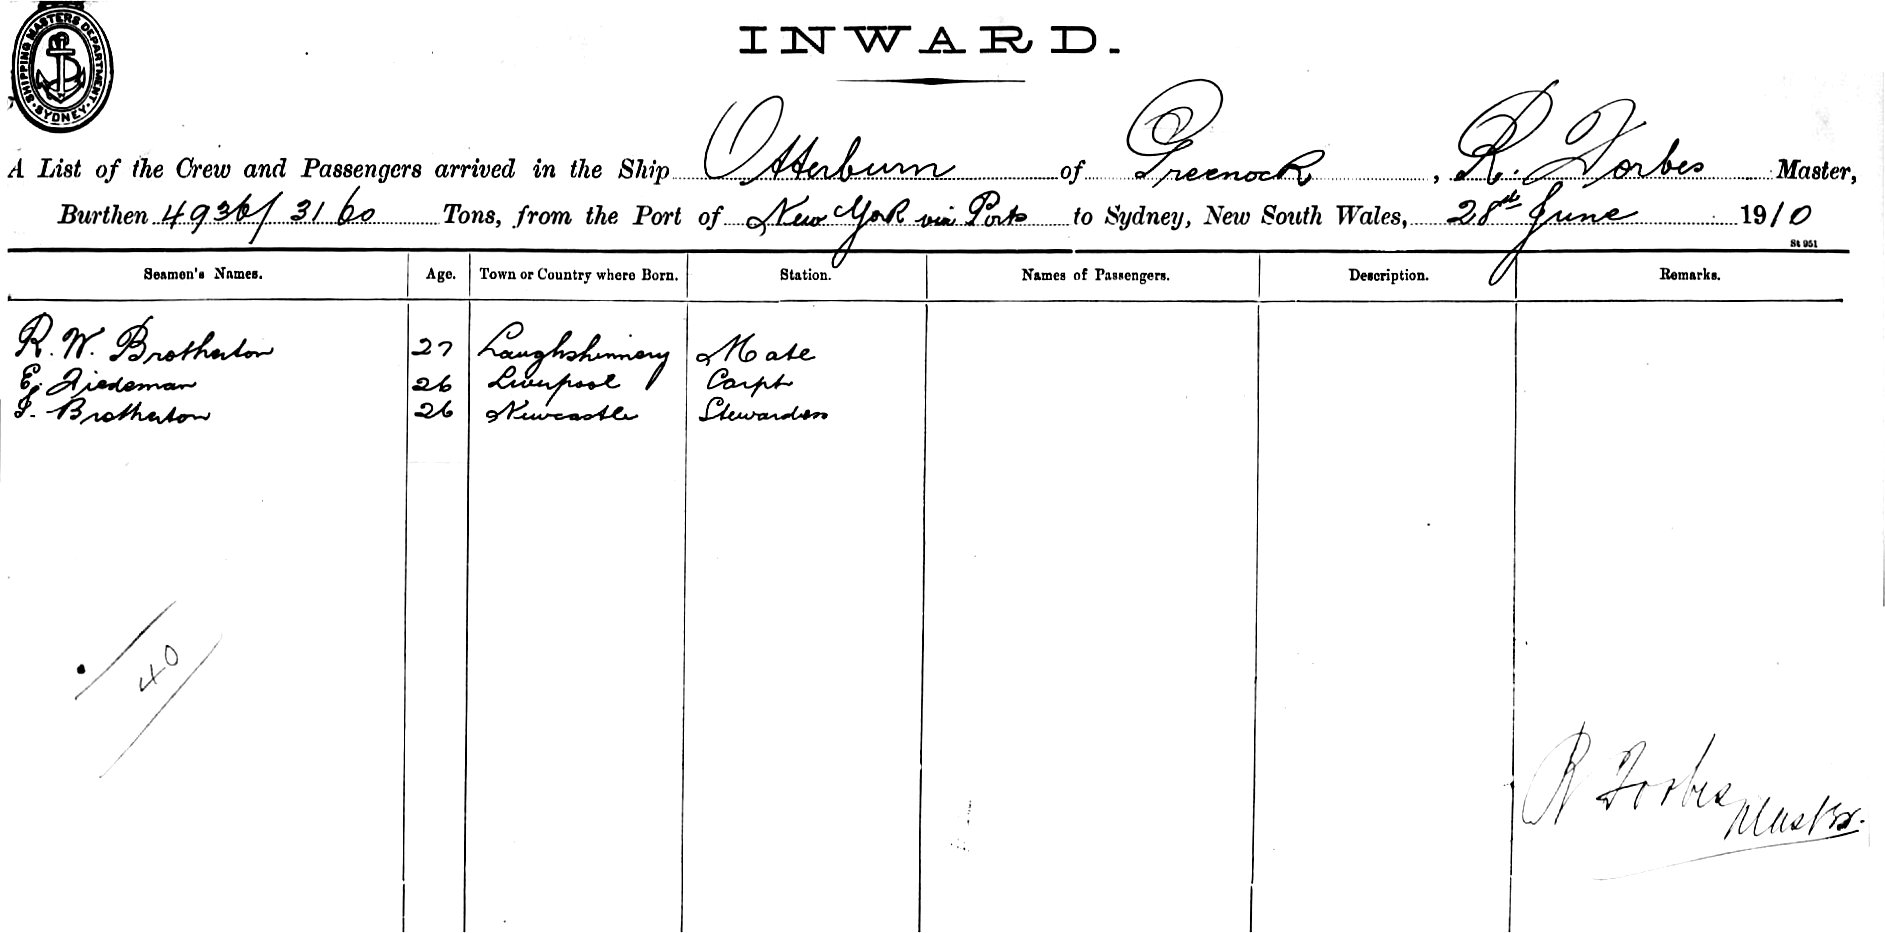 SHIPPING MASTERS DEPARTMENT · SYDNEY ·
INWARD.
A List of the Crew and Passengers arrived in the Ship Otterburn of Greenock, R. Forbes Master,
Burthen 4936/3160 Tons, from the Port of New York via Ports to Sydney, New South Wales, 28th June 1910
St 951
Seamen's Names. Age. Town or Country where Born. Station. Names of Passengers. Description. Remarks.
R. W. Brotherton 27 Laughshinney Mate
E. Tiedeman 26 Liverpool Carpt
I. Brotherton 26 Newcastle Stewardess
40
R Forbes
Master.